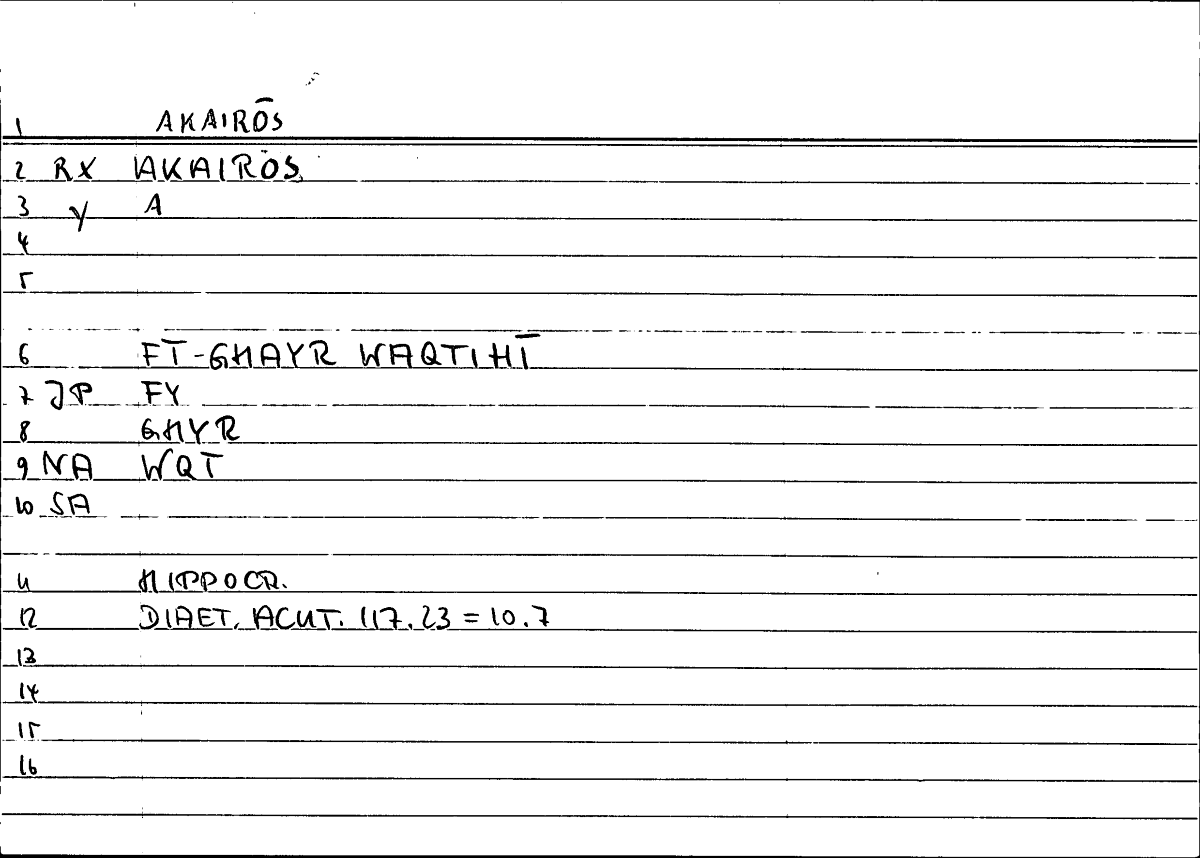 1 AKAIRŌS
2 RX AKAIRŌS
3 Y A
4
5
6 FĪ-GHAYR WAQTIHĪ
7 JP FY
8 GHYR
9 NA WQT
10 SA
11 HIPPOCR.
12 DIAET. ACUT. 117.23 = 10.7
13
14
15
16